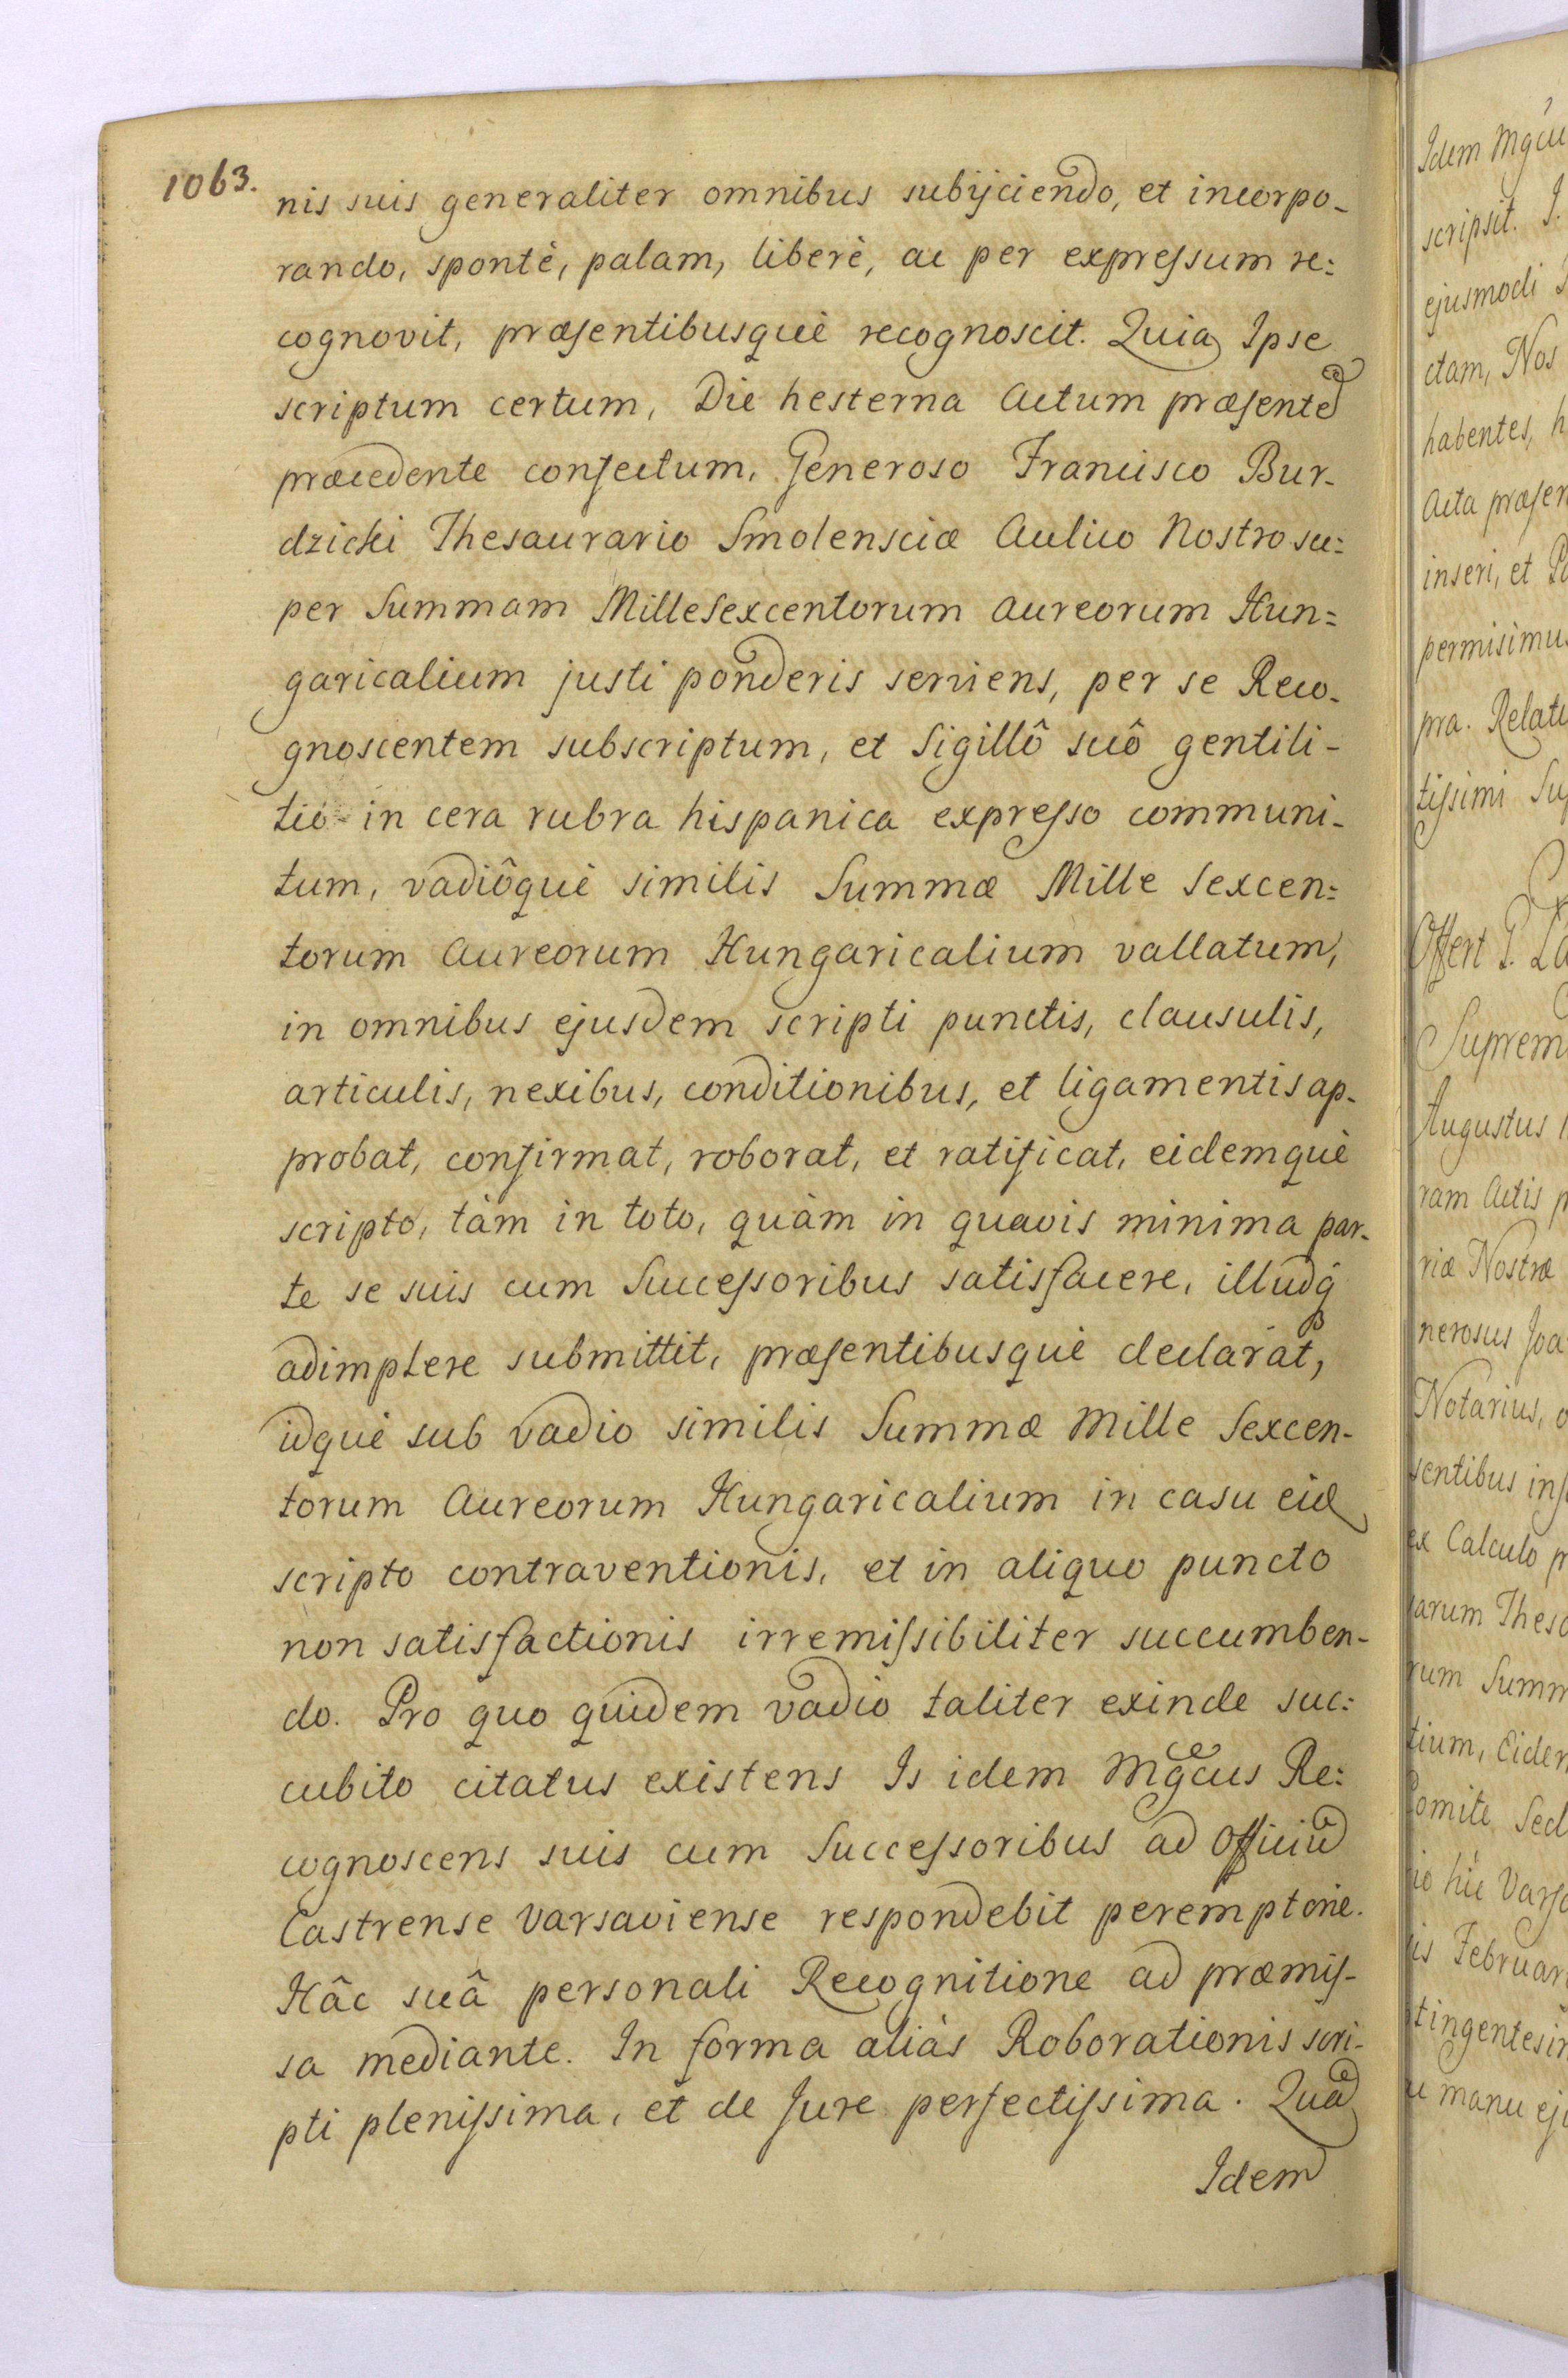 1063.
nis suis generaliter omnibus subijciendo, et incorpo-
rando, spontè, palam, liberè, ac per expressum re:
cognovit, præsentibusquè recognoscit. Quia Ipse
scriptum certum, Die hesterna Actum præsentẽ
præcedente confectum, Generoso Francisco Bur-
dzicki Thesaurario Smolensciæ Aulico Nostro su:
per Summam Mille Sexcentorum Aureorum Hun:
garicalium justi ponderis serviens, per se Reco-
gnoscentem subscriptum, et Sigillô suô gentili-
tio in cera rubra hispanica expresso communi-
tum, vadiôquè similis Summæ Mille Sexcen:
torum Aureorum Hungaricalium vallatum,
in omnibus ejusdem scripti punctis, clausulis,
articulis, nexibus, conditionibus, et ligamentis ap-
probat, confirmat, roborat, et ratificat, eidemquè
scripto, tàm in toto, quàm in quavis minima par-
te se suis cum Successoribus satisfacere, illudq́
adimplere submittit, præsentibusquè declarat,
idquè sub vadio similis Summæ Mille Sexcen-
torum Aureorum Hungaricalium in casu eid
scripto contraventionis, et in aliquo puncto
non satisfactionis irremissibiliter succumben-
do. Pro quo quidem vadio taliter exinde suc:
cubito citatus existens Is idem Mgcus Re:
cognoscens suis cum Successoribus ad Officiũ
Castrense Varsaviense respondebit peremptorie.
Hâc suâ personali Recognitione ad præmis-
sa mediante. In forma aliàs Roborationis scri-
pti plenissima, et de Jure perfectissima. Quã
Idem
Idem Mgcu
scripsit. I.
ejusmodi
ctam, Nos
habentes, h
Acta præsen
inseri, et
permisimus
pra. Relati
tissimi Su
Offert G. La
Suprem
Augustus
ram Actis p
riæ Nostræ
nerosus Joa
Notarius, o
sentibus ins
ex Calculo p
arum Thesa
rum Summ
tium, Eidem
Comite Sed
io hic Varsa
is Februar
tingentesim
u manu eju